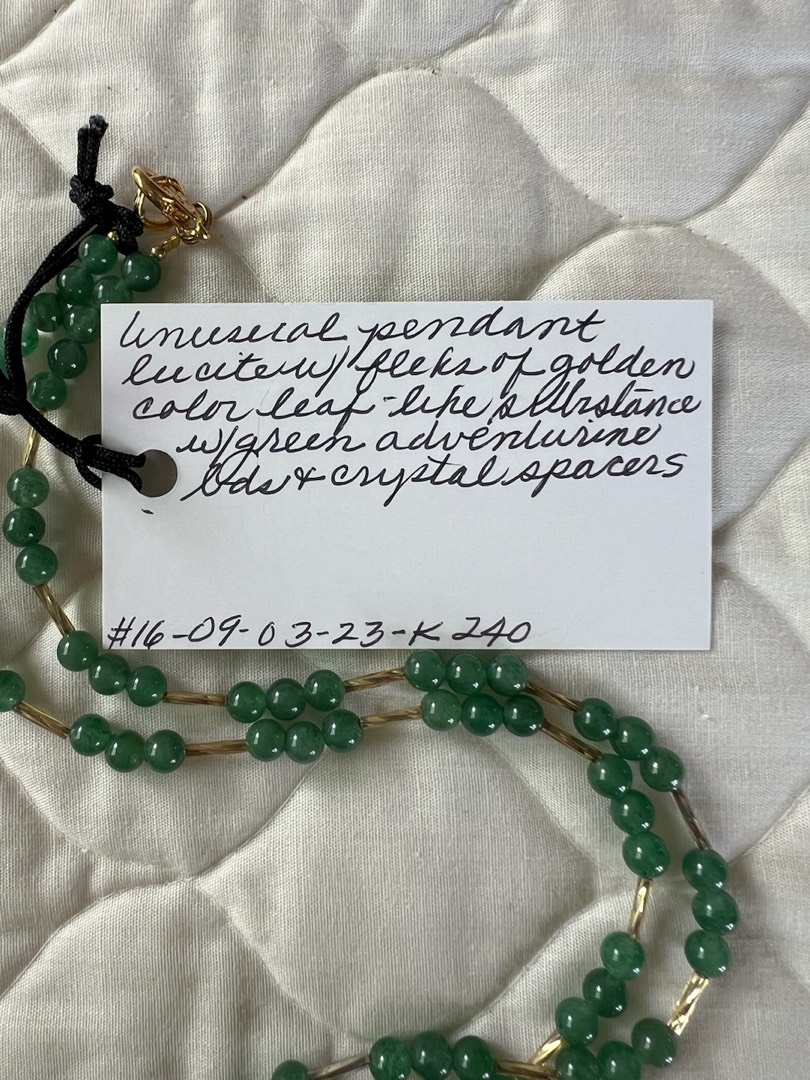 Unusual pendant
lucite w/ fleks of golden
color leaf-like substance
w/green adventurine
bds + crystal spacers
#16-09-03-23-K 240